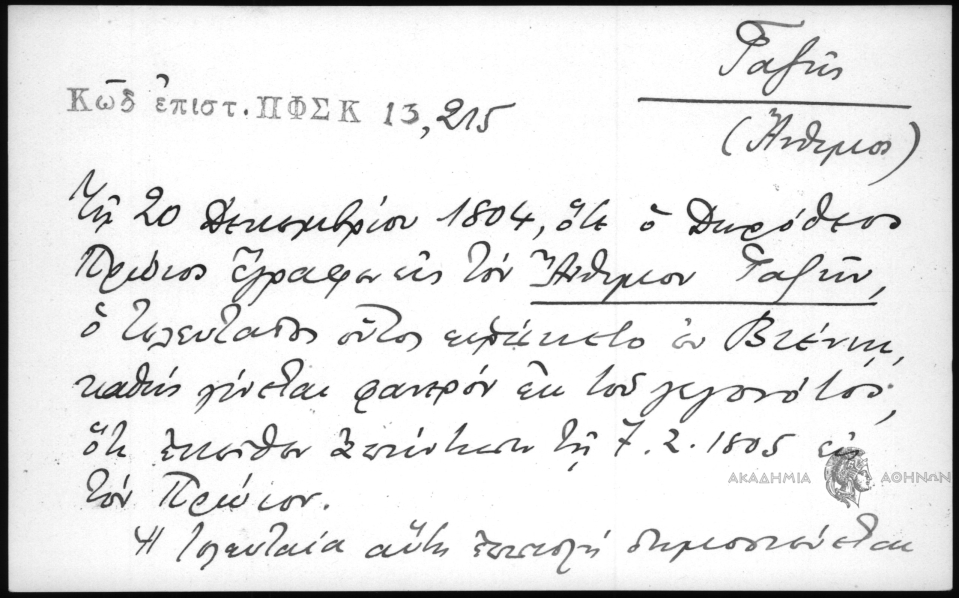 Γαζῆς
Κῶδ ἐπιστ. ΠΦΣΚ 13, 215
(Ἄνθιμος)
Τῇ 20 Δεκεμβρίου 1804, ὅτε ὁ Δωρόθεος
Πρώιος ἔγραφεν εἰς τὸν Ἄνθιμον Γαζῆν,
ὁ τελευταῖος οὗτος εὑρίσκετο ἐν Βιέννῃ,
καθὼς γίνεται φανερόν ἐκ τοῦ γεγονότος,
ὅτι ἐκεῖθεν ἀπήντησεν τῇ 7.2.1805 εἰς
τὸν Πρώιον.
ΑΚΑΔΗΜΙΑ ΑΘΗΝΩΝ
Ἡ τελευταία αὕτη ἐπιστολὴ δημοσιεύεται